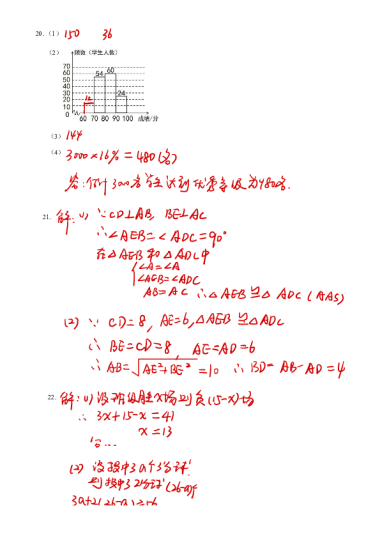 20. (1) 150 36
(2) 频数(学生人数)
70
60
50
40
30
20
10
0
12 54 60 24
60 70 80 90 100 成绩/分
(3) 144
(4) 3000×16%=480(名)
答:估计3000名学生达到优秀等级为480名.
21. 解:(1) ∵CD⊥AB, BE⊥AC
∴∠AEB=∠ADC=90°
在△AEB和△ADC中
∠A=∠A
∠AEB=∠ADC
AB=AC ∴△AEB≌△ADC(AAS)
(2) ∵ CD=8, AE=6, △AEB≌△ADC
∴ BE=CD=8, AE=AD=6
∴ AB=√AE²+BE²=10 ∴ BD=AB-AD=4
22. 解:(1) 设 胜x场则负(15-x)场
∴ 3x+15-x=41
x=13
答...
(2) 设投中3分球
则投中2分球(26-a)个
3a+2(26-a)≥56